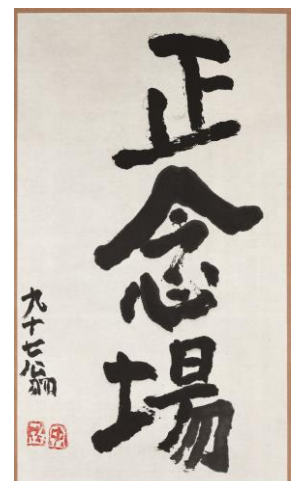 正念場
九十七翁